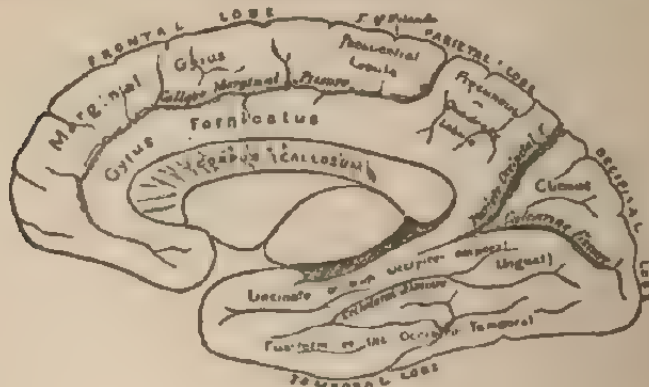 FRONTAL LOBE
F. of Rolando
PARIETAL LOBE
OCCIPITAL LOBE
Marginal Gyrus
Calloso Marginal Fissure
Paracentral
Lobule
Precuneus
or
Quadrate
Lobule
Gyrus Fornicatus
CORPUS CALLOSUM
Parieto Occipital F.
Cuneus
Calcarine Fissure
Uncinate or
Occipito-temporal
Lingual
Collateral Fissure
Fusiform or
Occipito Temporal
TEMPORAL LOBE